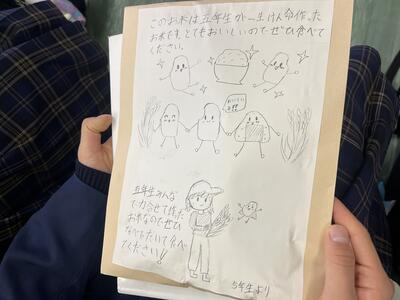 このお米は五年生が一生けん命作った
お米です。とてもおいしいのでぜひ食べて
ください。
おいしい
五年生みんな
で力合せて作った
お米なのでぜひ
なべでたいて食べ
てください!!
5年生より